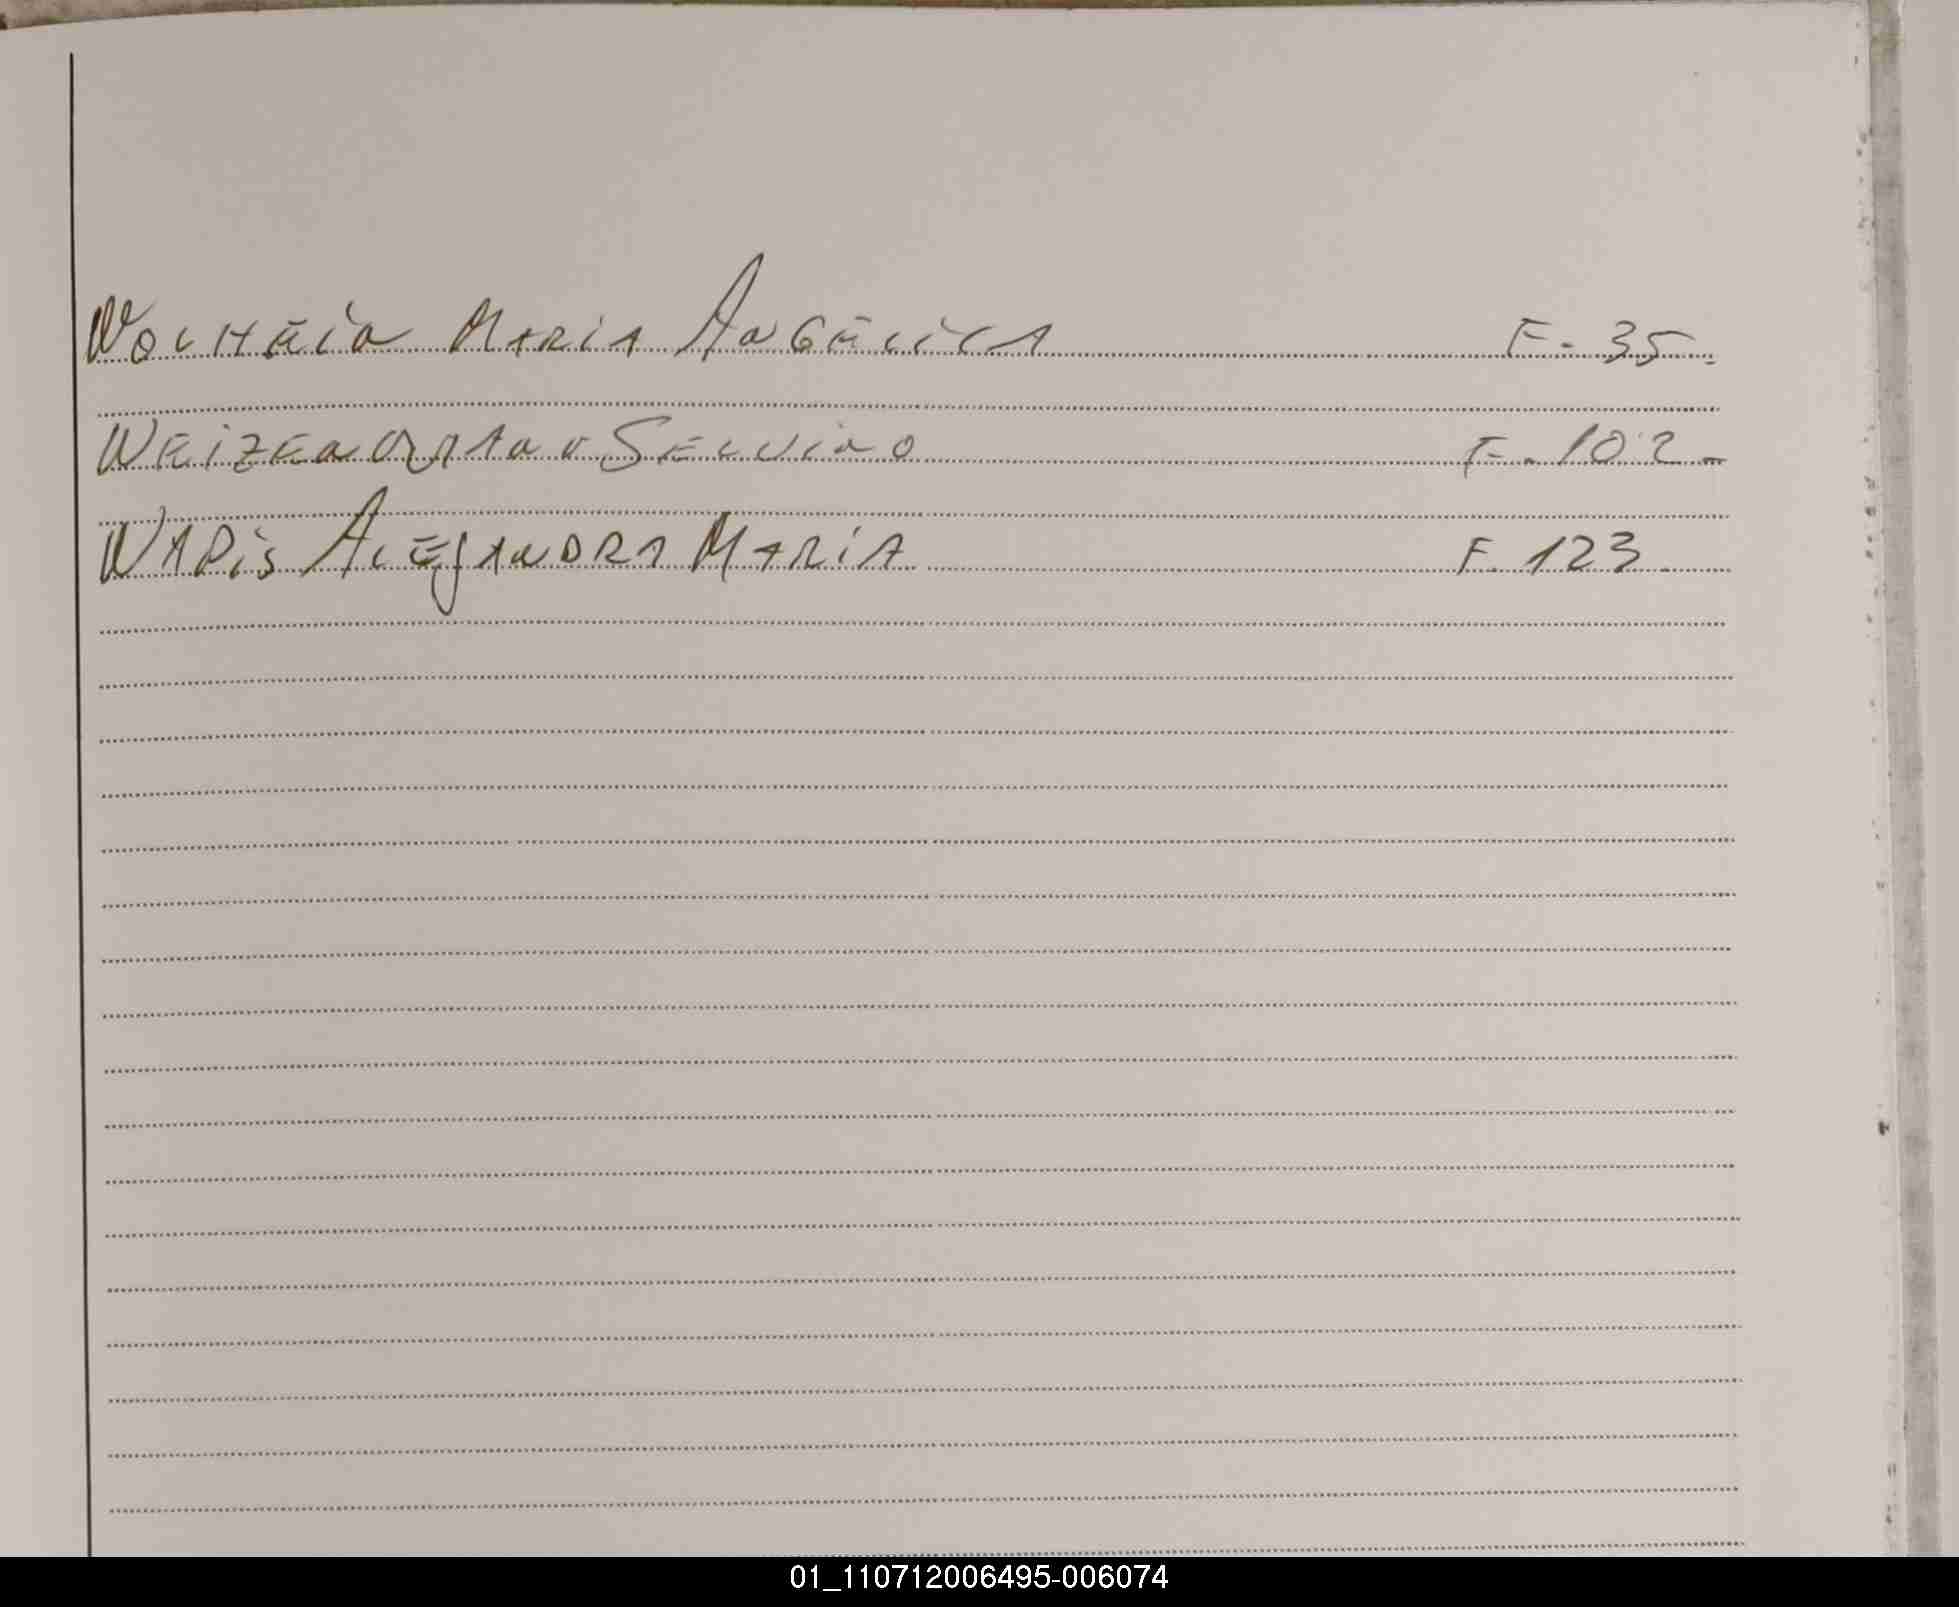 WOLHEIN MARIA ANGELICA F. 35.
SELVINO F. 102.
WADIS ALEJANDRA MARIA F. 123.
01_110712006495-006074